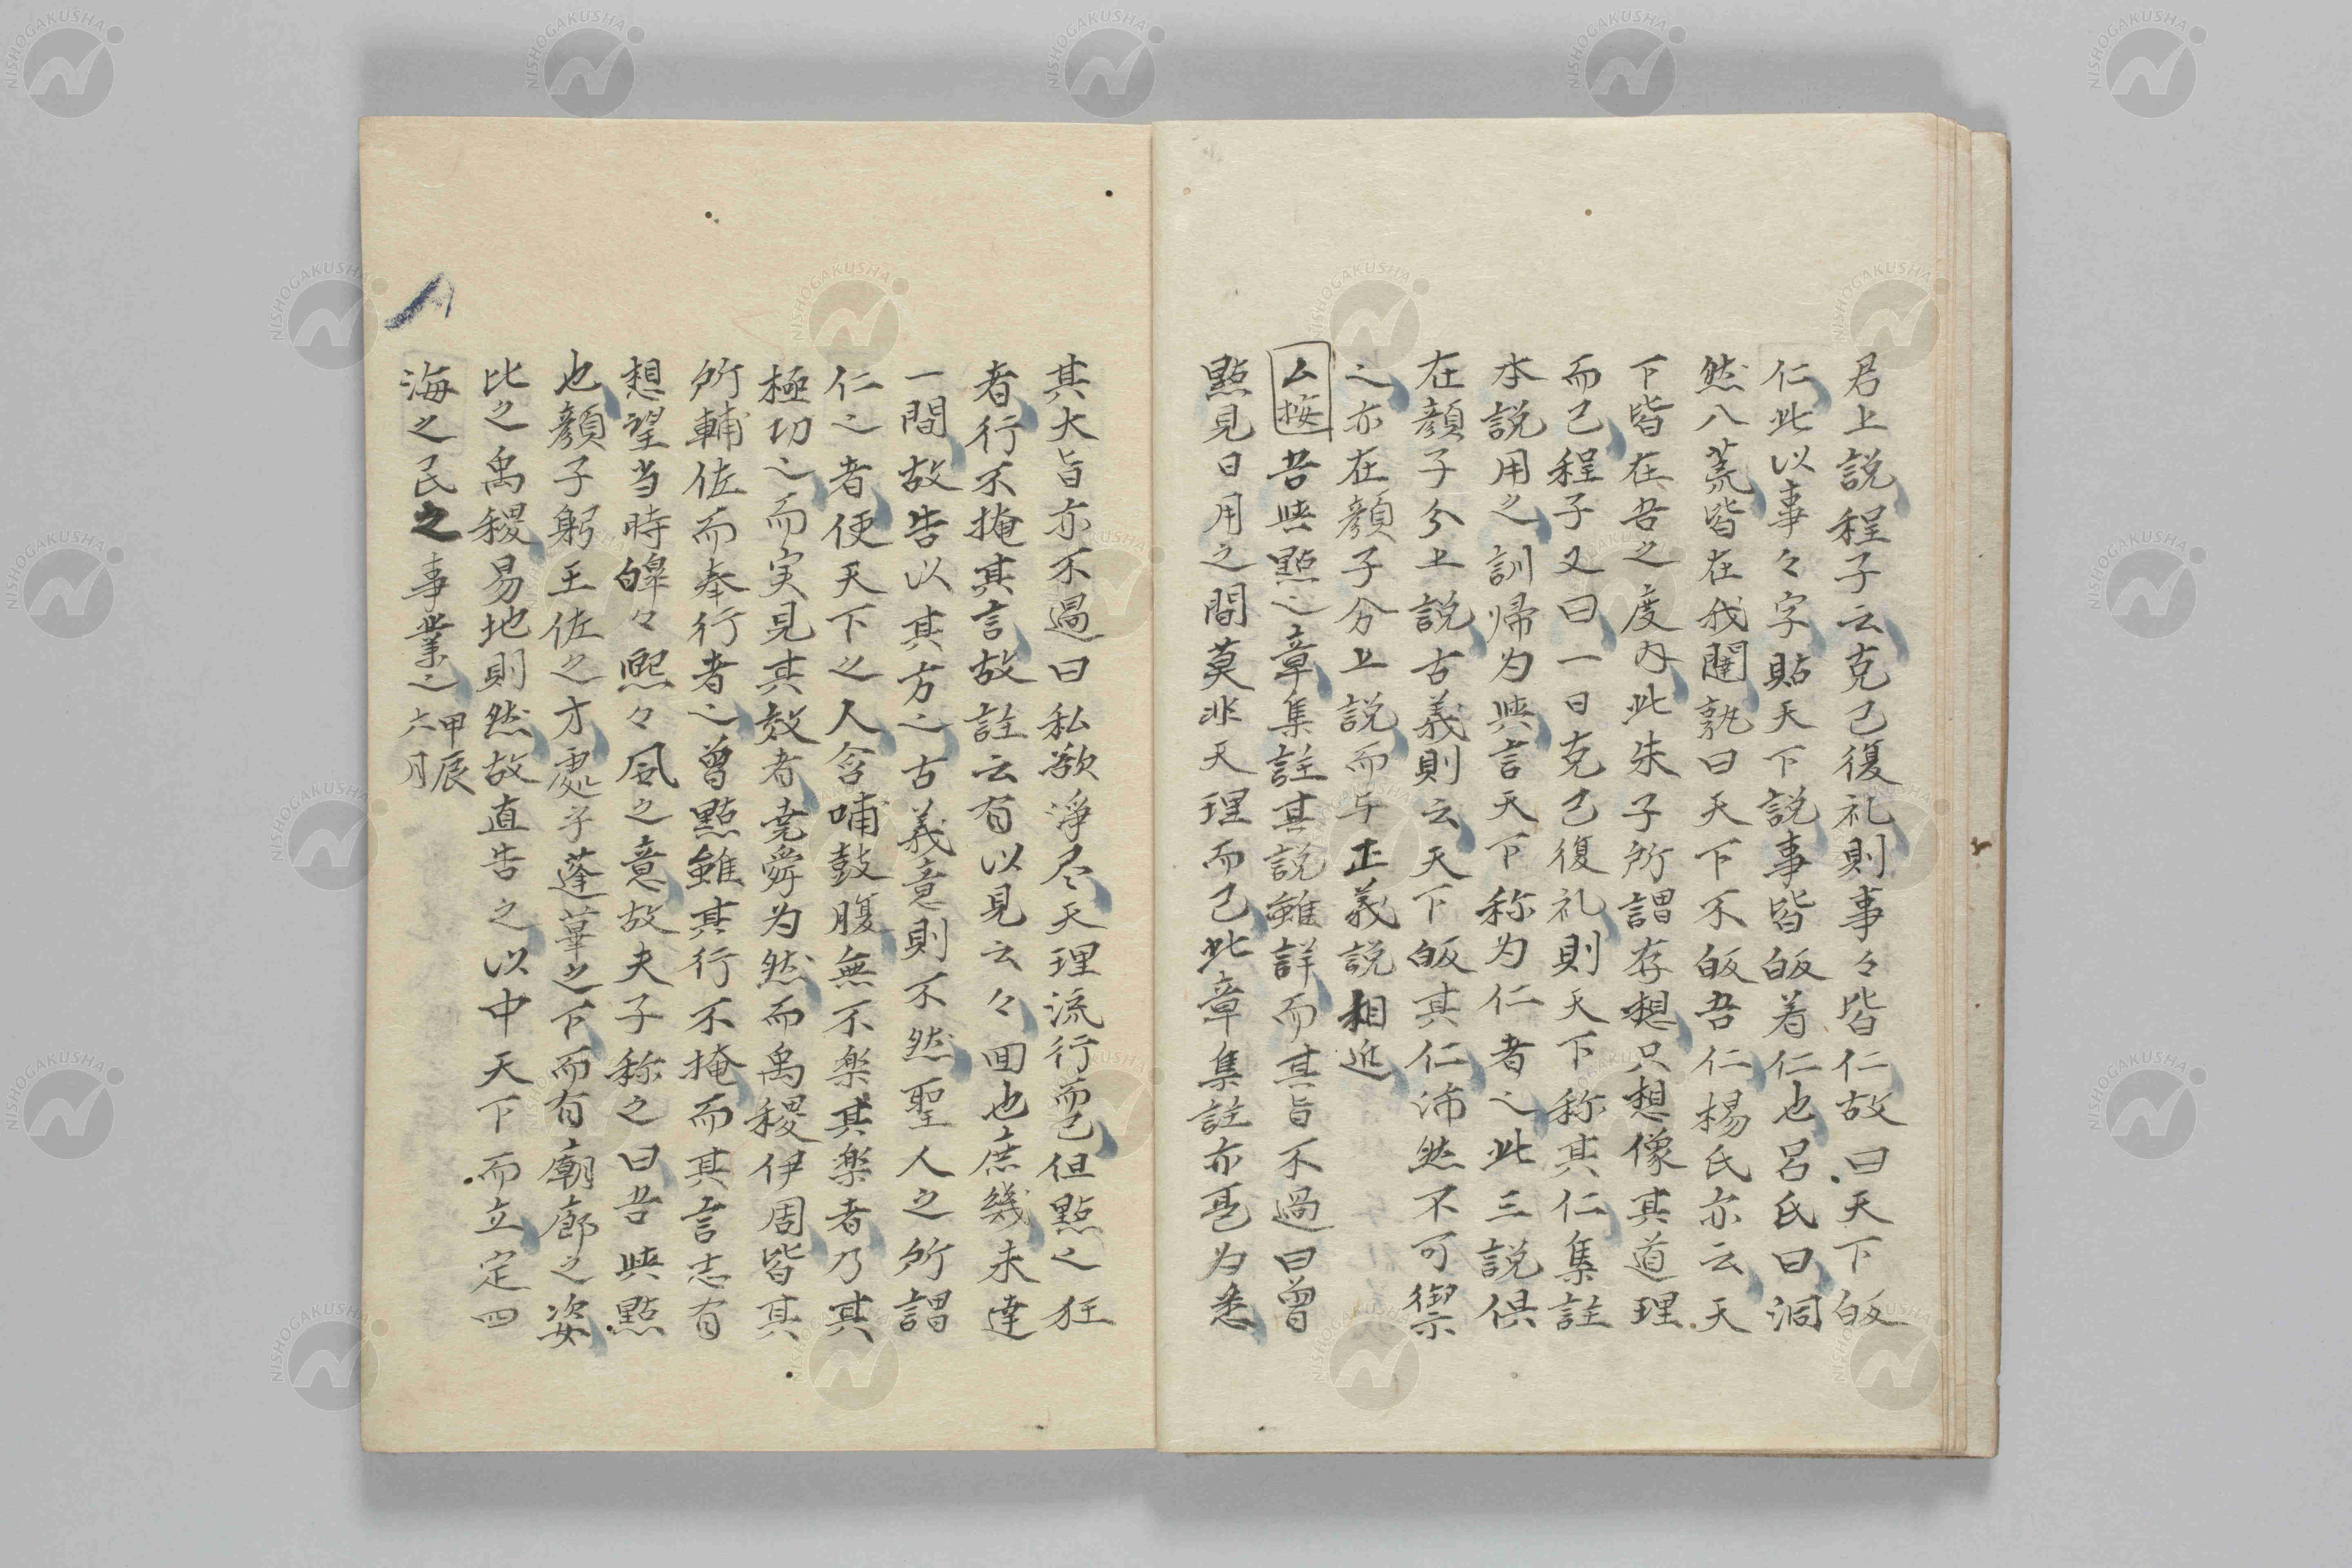 君上説程子云克己復礼則事々皆仁故曰天下皈
仁此以事々字貼天下説事皆皈着仁也呂氏曰洞
然八荒皆在我闥孰曰天下不皈吾仁楊氏亦云天
下皆在吾之度内此朱子所謂存想只想像其道理
而已程子又曰一日克己復礼則天下称其仁集註
本説用之訓帰为與言天下称为仁者之此三説倶
在顔子分上説古義則云天下皈其仁沛然不可禦
之亦在顔子分上説而与正義説相近
厶按吾與點之章集註其説雖詳而其旨不過曰曽
點見日用之間莫非天理而已此章集註亦甚为悉
其大旨亦不過曰私欲淨尽天理流行而已但點之狂
者行不掩其言故註云有以見云々回也庶幾未達
一間故告以其方之古義意則不然聖人之所謂
仁之者使天下之人含哺鼓腹無不楽其楽者乃其
極功之而実見其效者尭舜为然而禹稷伊周皆其
所輔佐而奉行者之曽點雖其行不掩而其言志有
想望当時皞々熙々風之意故夫子称之曰吾與點
也顔子躬王佐之才處乎蓬蓽之下而有廟廊之姿
比之禹稷易地則然故直告之以中天下而立定四
海之民之事業之 甲辰
六月
NISHOGAKUSHA